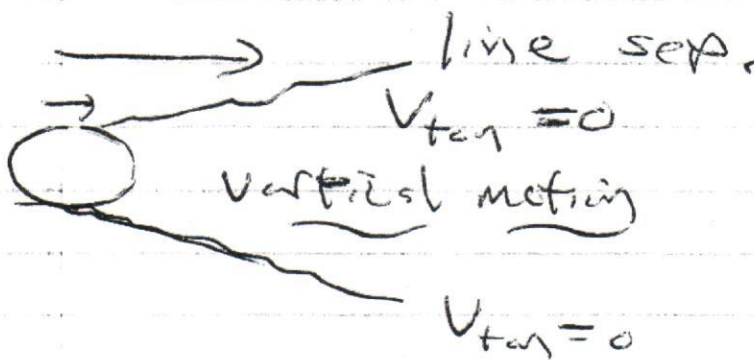 line sep.
V_tan = 0
Vortical motion
V_tan = 0